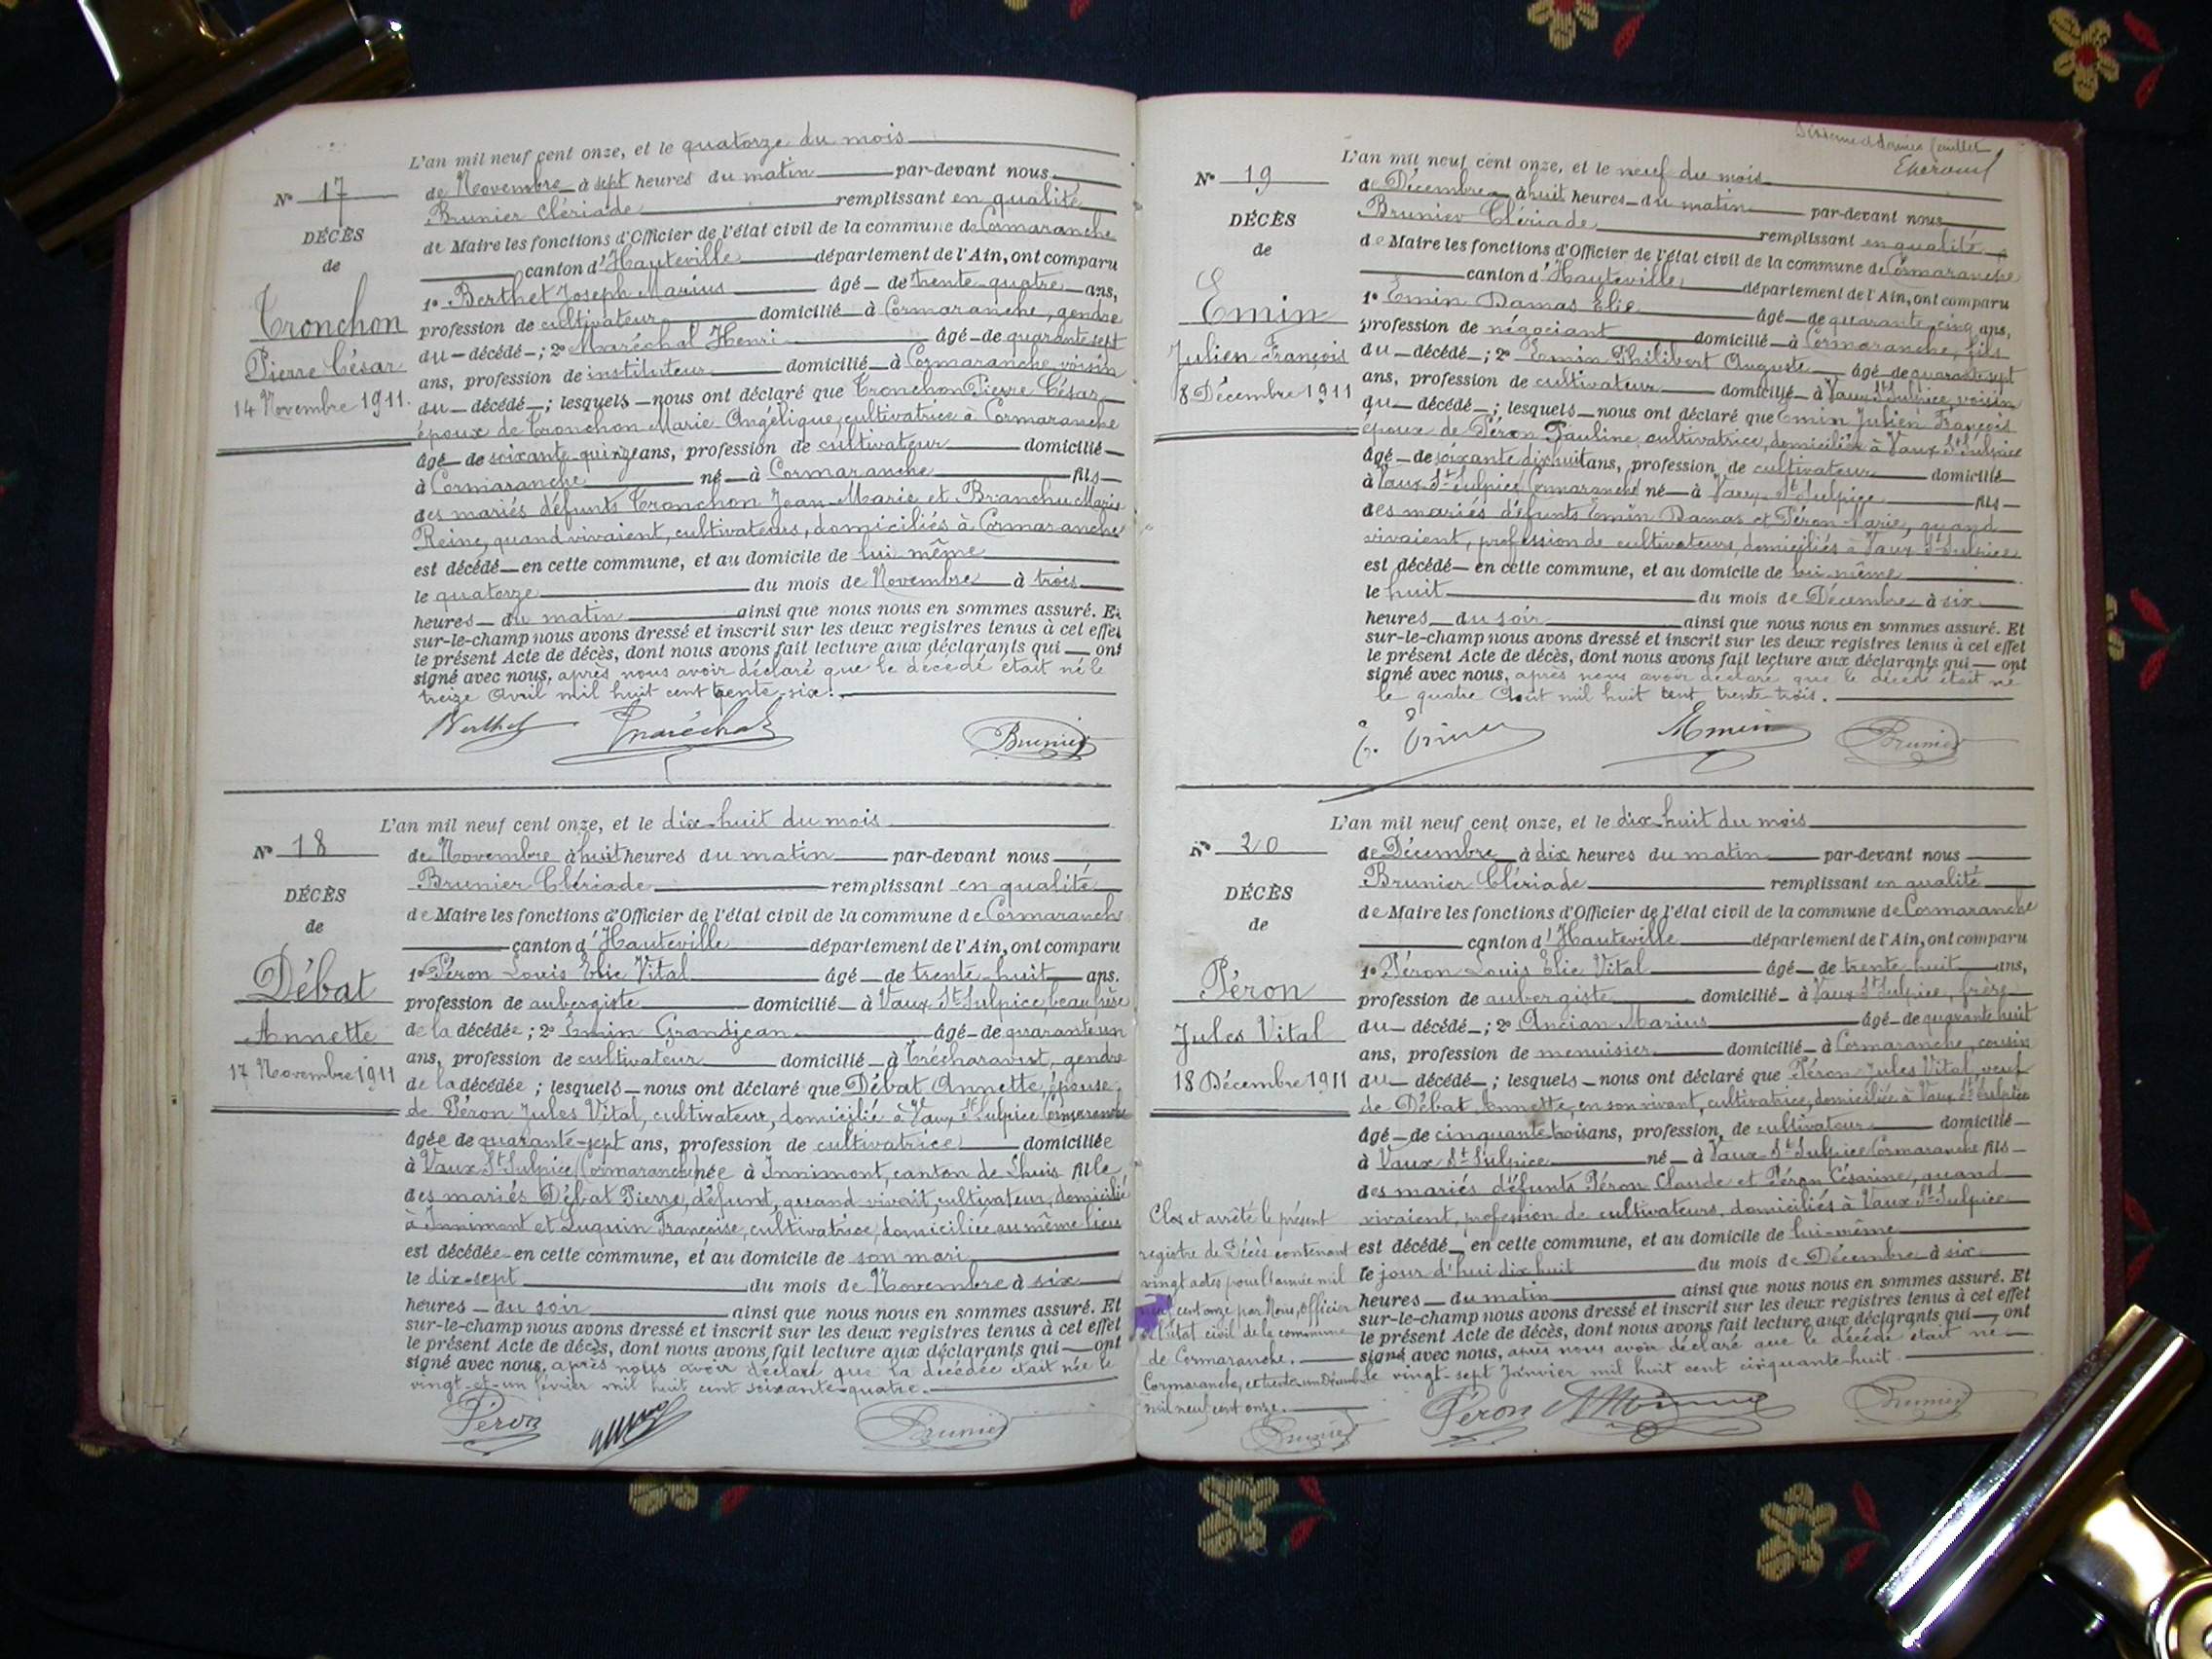 L'an mil neuf cent onze, et le quatorze du mois
N° 17
de Novembre à sept heures du matin par-devant nous
Brunier Clériade remplissant en qualité
DÉCÈS
de Maire les fonctions d'Officier de l'état civil de la commune de Cormaranche
de
canton d'Hauteville département de l'Ain, ont comparu
1° Berthet Joseph Marius âgé de trente-quatre ans,
Tronchon
profession de cultivateur domicilié à Cormaranche, gendre
du décédé ; 2° Maréchal Henri âgé de quarante sept
Pierre César
ans, profession de instituteur domicilié à Cormaranche, voisin
14 Novembre 1911.
du décédé ; lesquels nous ont déclaré que Tronchon Pierre César
époux de Tronchon Marie Angélique, cultivatrice à Cormaranche
âgé de soixante-quinze ans, profession de cultivateur domicilié
à Cormaranche né à Cormaranche fils
des mariés défunts Tronchon Jean-Marie et Branchu Marie
Reine, quand vivaient, cultivateurs, domiciliés à Cormaranche
est décédé en cette commune, et au domicile de lui même
le quatorze du mois de Novembre à trois
heures du matin ainsi que nous nous en sommes assuré. Et
sur-le-champ nous avons dressé et inscrit sur les deux registres tenus à cet effet
le présent Acte de décès, dont nous avons fait lecture aux déclarants qui ont
signé avec nous, après nous avoir déclaré que le décédé était né le
treize Avril mil huit cent trente-six.
Berthet Maréchal Brunier
L'an mil neuf cent onze, et le dix-huit du mois
N° 18
de Novembre à huit heures du matin par-devant nous
Brunier Clériade remplissant en qualité
DÉCÈS
de Maire les fonctions d'Officier de l'état civil de la commune de Cormaranche
de
canton d'Hauteville département de l'Ain, ont comparu
1° Péron Louis Elie Vital âgé de trente-huit ans.
Débat
profession de aubergiste domicilié à Vaux St Sulpice, beau frère
de la décédée ; 2° Emin Grandjean âgé de quarante un
Annette
ans, profession de cultivateur domicilié à Trécharavut, gendre
17 Novembre 1911
de la décédée ; lesquels nous ont déclaré que Débat Annette, épouse
de Péron Jules Vital, cultivateur, domicilié à Vaux St Sulpice Cormaranche
âgée de quarante-sept ans, profession de cultivatrice domiciliée
à Vaux St Sulpice (Cormaranche) née à Innimont, canton de Lhuis fille
des mariés Débat Pierre, défunt, quand vivait, cultivateur, domicilié
à Innimont et Luquin Françoise, cultivatrice, domiciliée au même lieu
est décédée en cette commune, et au domicile de son mari
le dix-sept du mois de Novembre à six
heures du soir ainsi que nous nous en sommes assuré. Et
sur-le-champ nous avons dressé et inscrit sur les deux registres tenus à cet effet
le présent Acte de décès, dont nous avons fait lecture aux déclarants qui ont
signé avec nous, après nous avoir déclaré que la décédée était née le
vingt-et-un février mil huit cent soixante-quatre.
Péron Brunier
feuillet
L'an mil neuf cent onze, et le neuf du mois
N° 19
de Décembre à huit heures du matin par-devant nous
Brunier Clériade remplissant en qualité
DÉCÈS
de Maire les fonctions d'Officier de l'état civil de la commune de Cormaranche
de
canton d'Hauteville département de l'Ain, ont comparu
1° Emin Damas Elie âgé de quarante cinq ans,
Emin
profession de négociant domicilié à Cormaranche, fils
du décédé ; 2° Emin Philibert Auguste âgé de quarante sept
Julien François
ans, profession de cultivateur domicilié à Vaux St Sulpice, voisin
8 Décembre 1911
du décédé ; lesquels nous ont déclaré que Emin Julien François
époux de Péron Pauline, cultivatrice, domiciliée à Vaux St Sulpice
âgé de soixante dix huit ans, profession de cultivateur domicilié
à Vaux St Sulpice Cormaranche né à Vaux St Sulpice fils
des mariés défunts Emin Damas et Péron Marie, quand
vivaient, profession de cultivateurs, domiciliés à Vaux St Sulpice
est décédé en cette commune, et au domicile de lui-même
le huit du mois de Décembre à six
heures du soir ainsi que nous nous en sommes assuré. Et
sur-le-champ nous avons dressé et inscrit sur les deux registres tenus à cet effet
le présent Acte de décès, dont nous avons fait lecture aux déclarants qui ont
signé avec nous, après nous avoir déclaré que le décédé était né
le quatre Août mil huit cent trente trois.
E. Emin Emin Brunier
L'an mil neuf cent onze, et le dix-huit du mois
N° 20
de Décembre à dix heures du matin par-devant nous
Brunier Clériade remplissant en qualité
DÉCÈS
de Maire les fonctions d'Officier de l'état civil de la commune de Cormaranche
de
canton d'Hauteville département de l'Ain, ont comparu
1° Péron Louis Elie Vital âgé de trente huit ans,
Péron
profession de aubergiste domicilié à Vaux St Sulpice, frère
du décédé ; 2° Ancian Marius âgé de quarante huit
Jules Vital
ans, profession de menuisier domicilié à Cormaranche, cousin
18 Décembre 1911
du décédé ; lesquels nous ont déclaré que Péron Jules Vital, veuf
de Débat Annette, en son vivant, cultivatrice, domiciliée à Vaux St Sulpice
âgé de cinquante trois ans, profession de cultivateur domicilié
à Vaux St Sulpice né à Vaux St Sulpice Cormaranche fils
des mariés défunts Péron Claude et Péron Césarine, quand
vivaient, profession de cultivateurs, domiciliés à Vaux St Sulpice
est décédé en cette commune, et au domicile de lui-même
le jour d'hui dix huit du mois de Décembre à six
heures du matin ainsi que nous nous en sommes assuré. Et
sur-le-champ nous avons dressé et inscrit sur les deux registres tenus à cet effet
le présent Acte de décès, dont nous avons fait lecture aux déclarants qui ont
signé avec nous, après nous avoir déclaré que le décédé était né
le vingt-sept Janvier mil huit cent cinquante-huit.
Péron Brunier
Clos et arrêté le présent
registre de Décès contenant
vingt actes pour l'année mil
neuf cent onze par Nous, Officier
de l'état civil de la commune
de Cormaranche.
Cormaranche, le trente-un Décembre
mil neuf cent onze.
Brunier